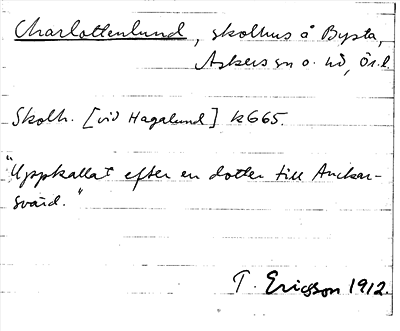 Charlottenlund, skolhus å Bysta,
Askers sn o. hd, Ör.l.
Skolh. [vid Hagalund] k665.
"Uppkallat efter en dotter till Anckar-
svärd."
T. Ericsson 1912.